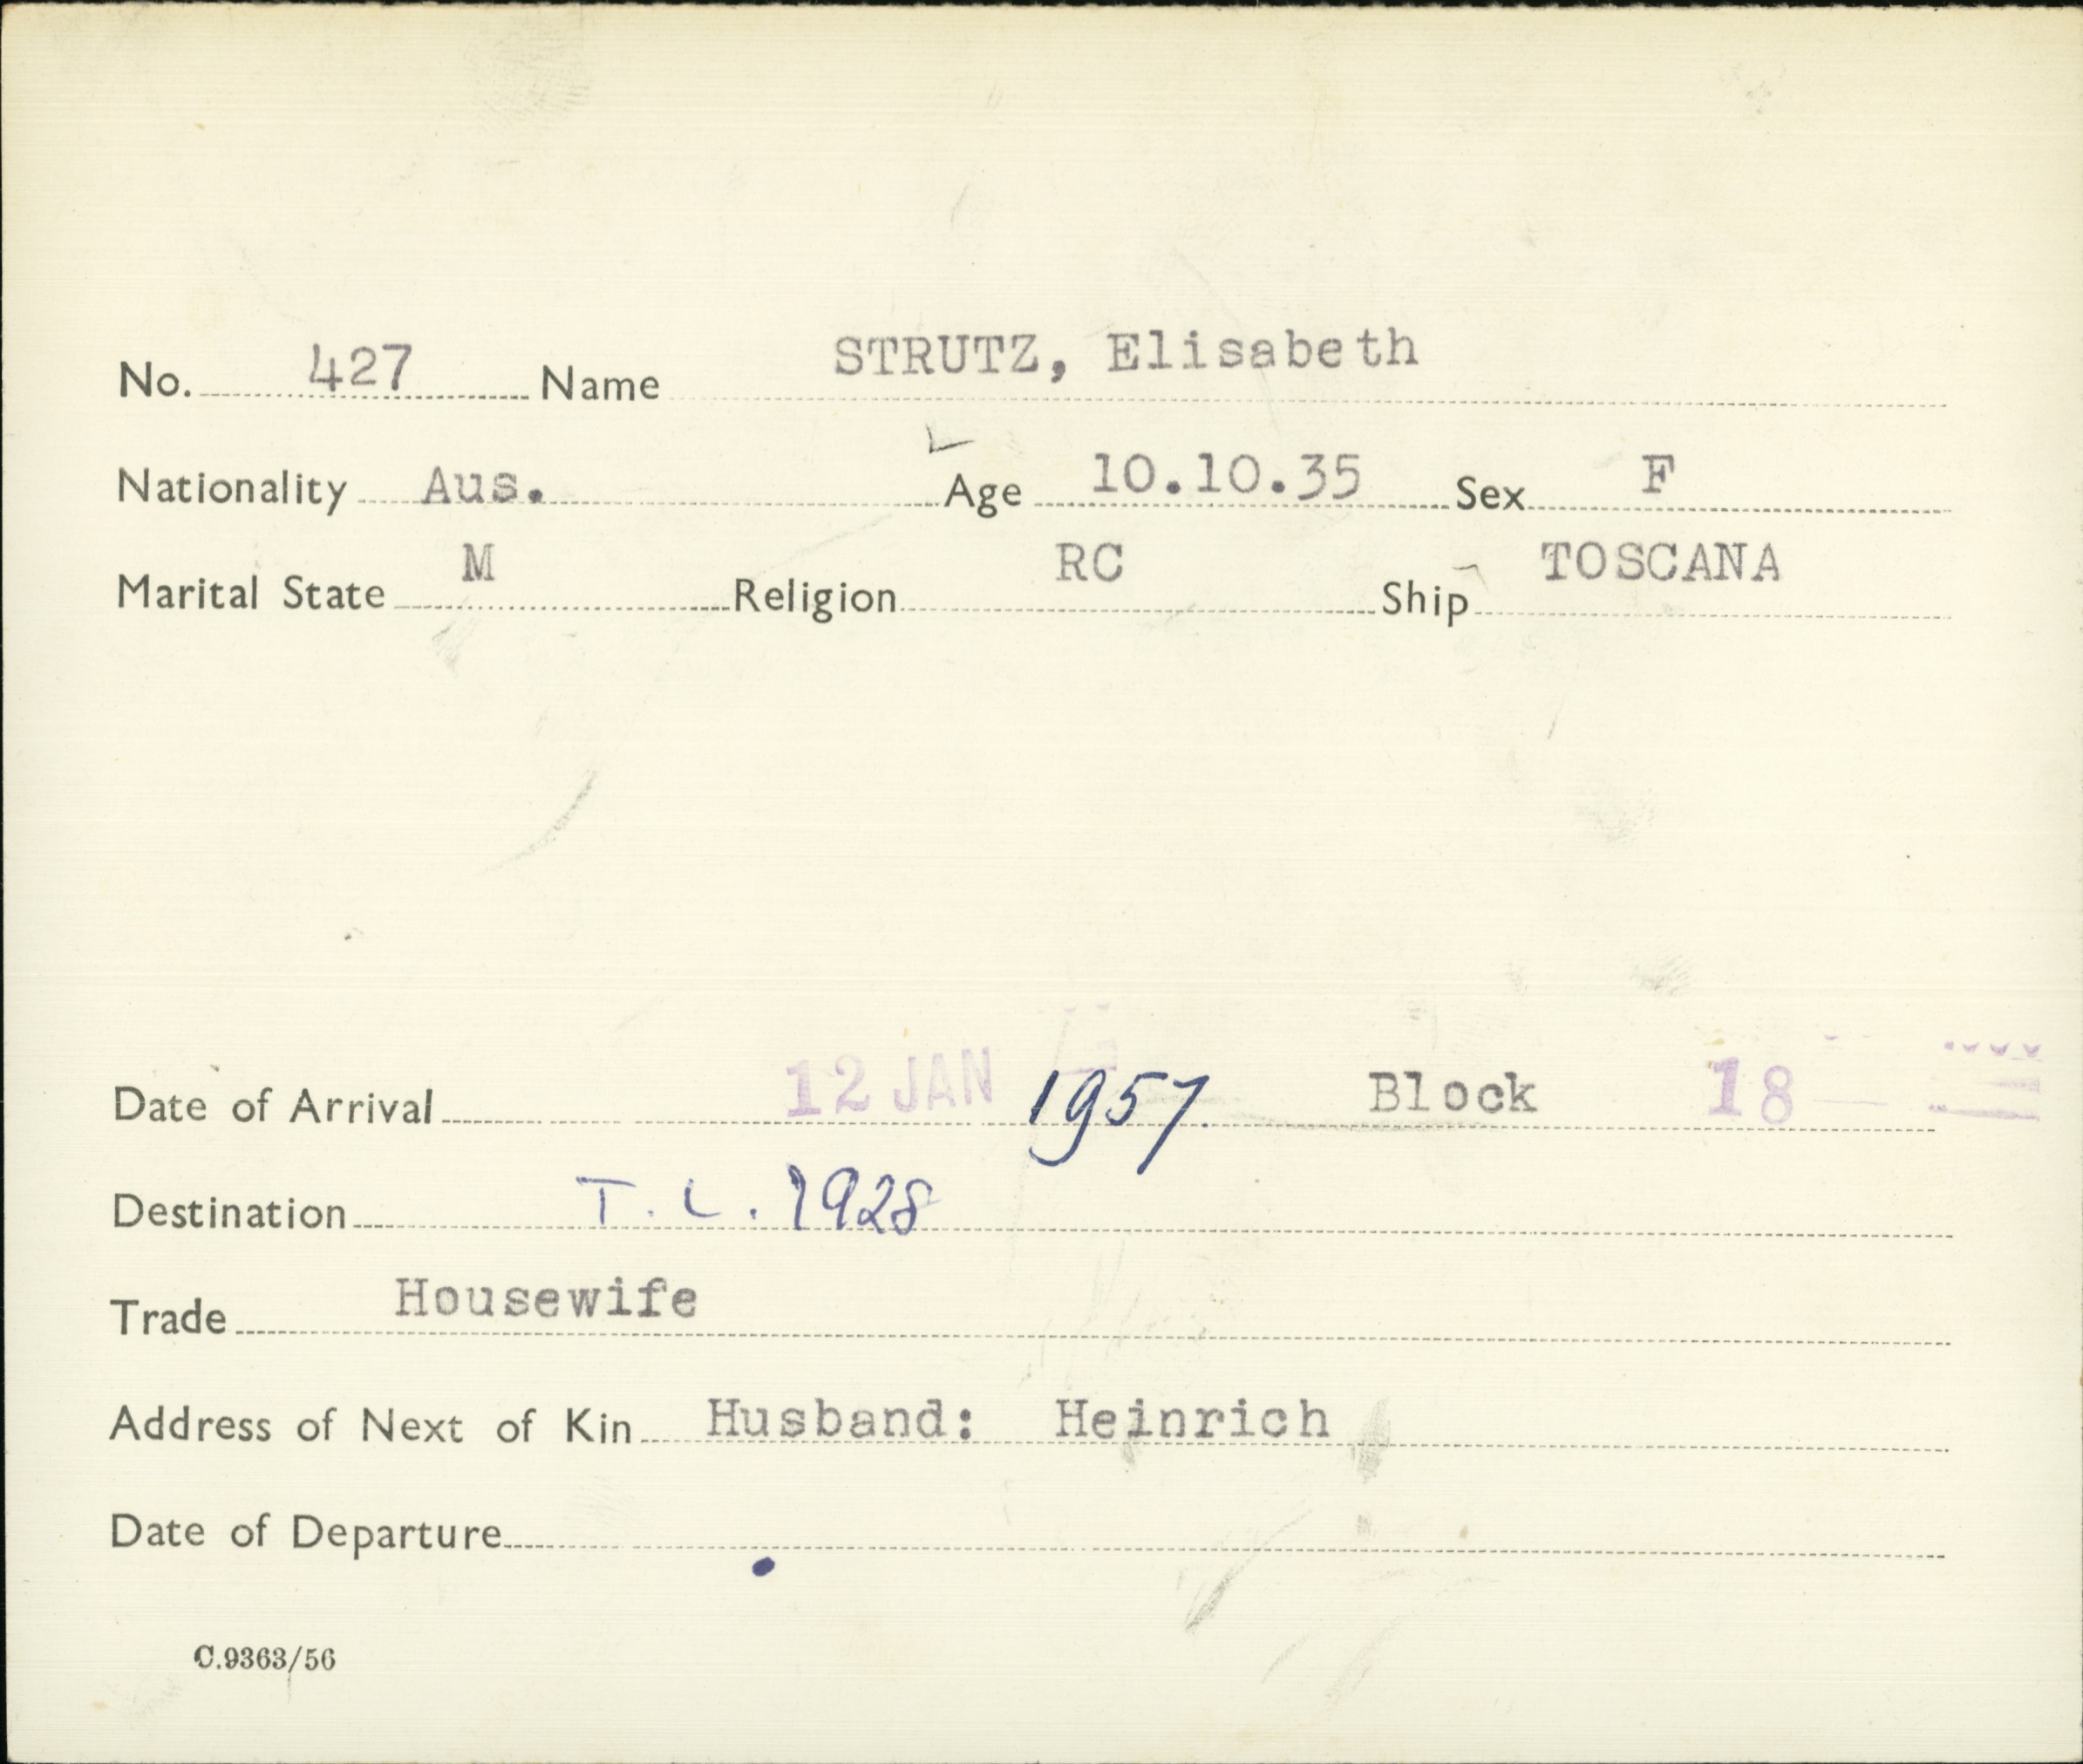 No. 427 Name STRUTZ, Elisabeth
Nationality Aus. Age 10.10.35 Sex F
Marital State M Religion RC Ship TOSCANA
Date of Arrival 12 JAN 1957. Block 18
Destination T.L. 1928
Trade Housewife
Address of Next of Kin Husband: Heinrich
Date of Departure
C.9363/56